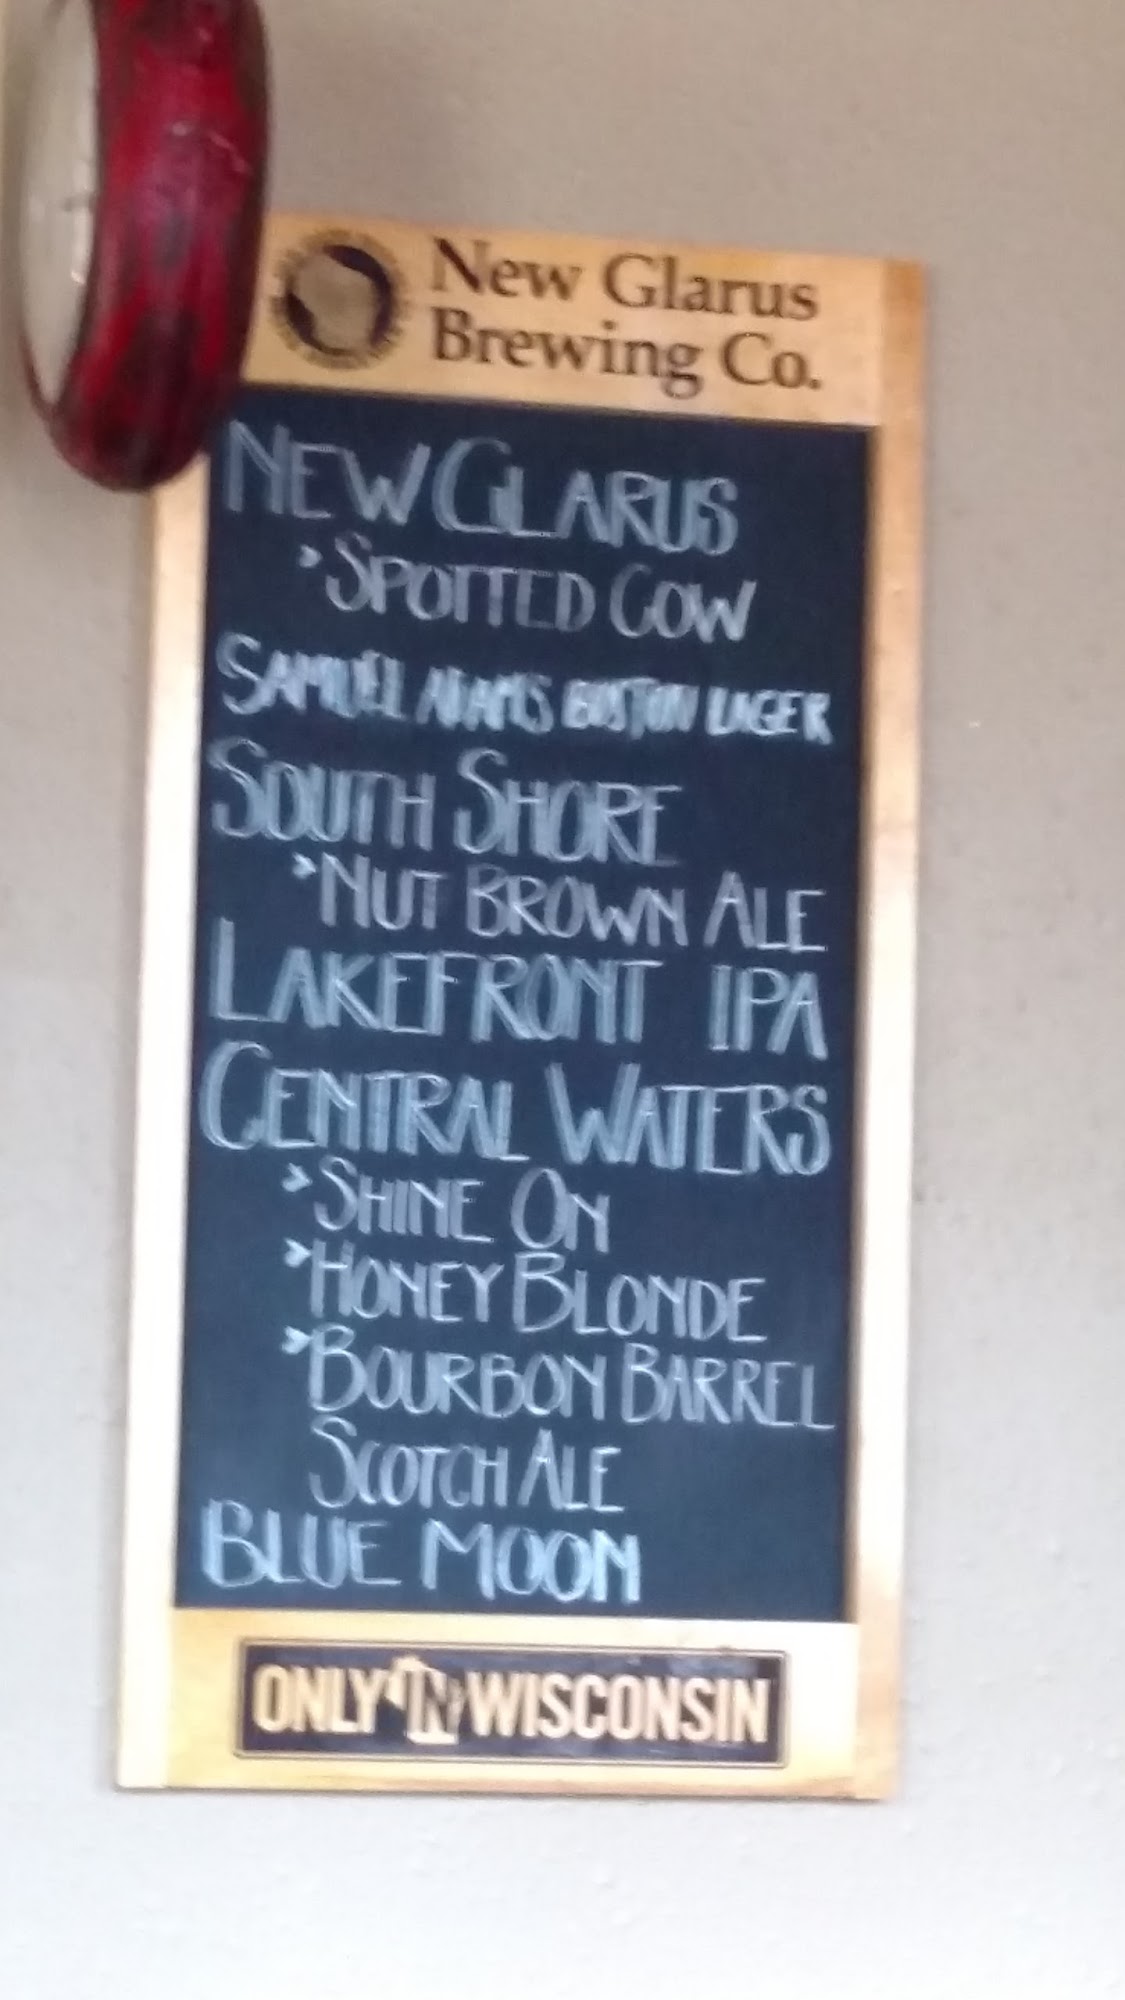 New Glarus
Brewing Co.
NEW GLARUS
SPOTTED COW
SAMUEL ADAMS BOSTON LAGER
SOUTH SHORE
NUT BROWN ALE
LAKEFRONT IPA
CENTRAL WATERS
SHINE ON
HONEY BLONDE
BOURBON BARREL
SCOTCH ALE
BLUE MOON
ONLY IN WISCONSIN